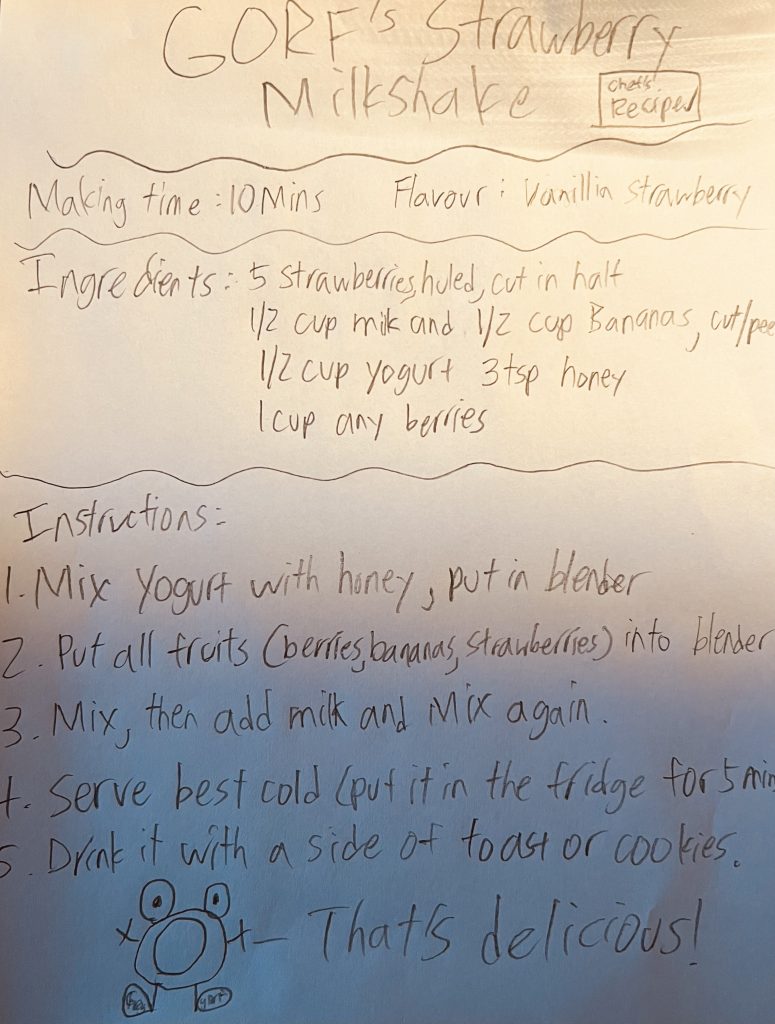 GORF's Strawberry
Milkshake
Chef's
Recipe
Making time : 10 Mins Flavour : Vanillia Strawberry
Ingredients: 5 strawberries, huled, cut in half
1/2 cup milk and 1/2 cup Bananas, cut/pee
1/2 cup yogurt 3 tsp honey
1 cup any berries
Instructions:
1. Mix Yogurt with honey, put in blender
2. Put all fruits (berries, bananas, strawberries) into blender
3. Mix, then add milk and Mix again.
4. Serve best cold (put it in the fridge for 5 min
5. Drink it with a side of toast or cookies.
That's delicious!